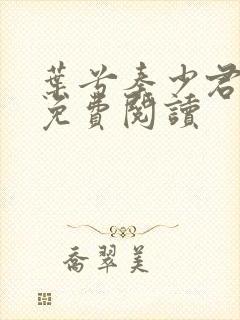 葉苦秦少君
免費閱讀
喬翠美